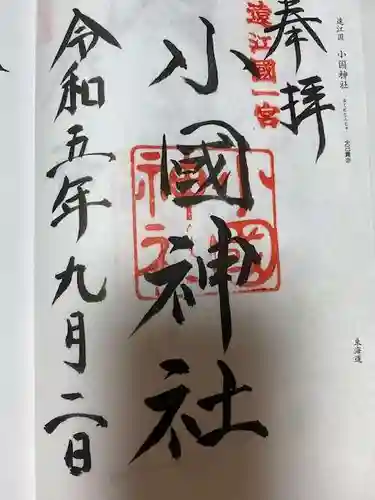 遠江国 小国神社
おくにじんじゃ
奉拝
遠江國一宮
小國神社
小國神社
令和五年九月二日
東海道